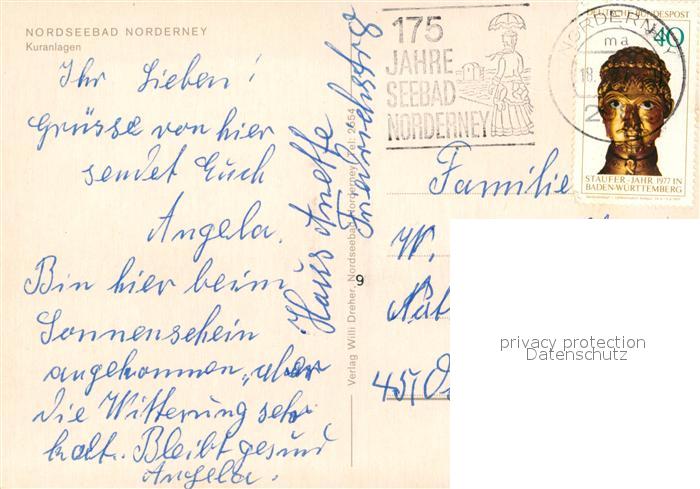 NORDSEEBAD NORDERNEY
Kuranlagen
Ihr Lieben!
Grüsse von hier
sendet Euch
Angela.
Bin hier beim
Sonnenschein
angekommen, aber
die Witterung sehr
kalt. Bleibt gesund
Angela.
Haus Anette
Friedrichstr. 9
Verlag Willi Dreher, Nordseebad Norderney, Tel. 2654
9
175
JAHRE
SEEBAD
NORDERNEY
NORDERNEY
ma
18.
2
DEUTSCHE BUNDESPOST
40
STAUFER-JAHR 1977 IN
BADEN-WÜRTTEMBERG
Familie
W.
45 Os
privacy protection
Datenschutz